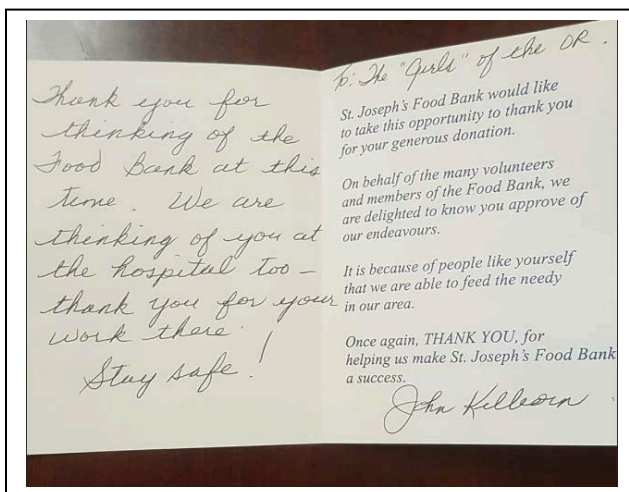 Thank you for
thinking of the
Food Bank at this
time. We are
thinking of you at
the hospital too -
thank you for your
work there.
Stay safe!
To: The "Girls" of the OR.
St. Joseph's Food Bank would like
to take this opportunity to thank you
for your generous donation.
On behalf of the many volunteers
and members of the Food Bank, we
are delighted to know you approve of
our endeavours.
It is because of people like yourself
that we are able to feed the needy
in our area.
Once again, THANK YOU, for
helping us make St. Joseph's Food Bank
a success.
John